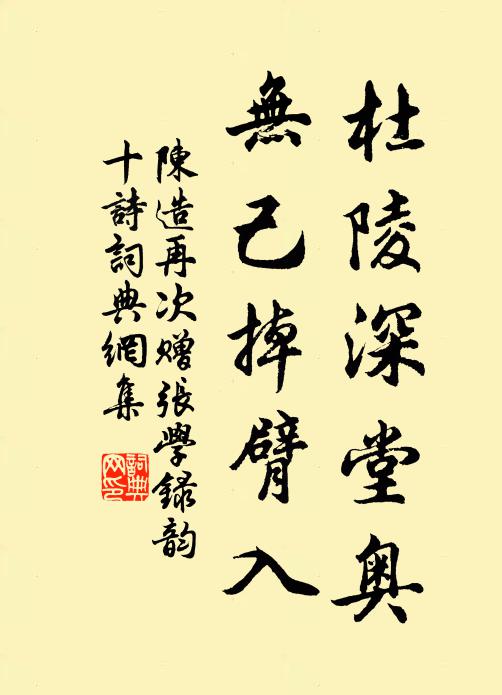 杜陵深堂奧
無己掉臂入
陳造再次贈張學錄韵
十詩詞典網集
詞典
网印